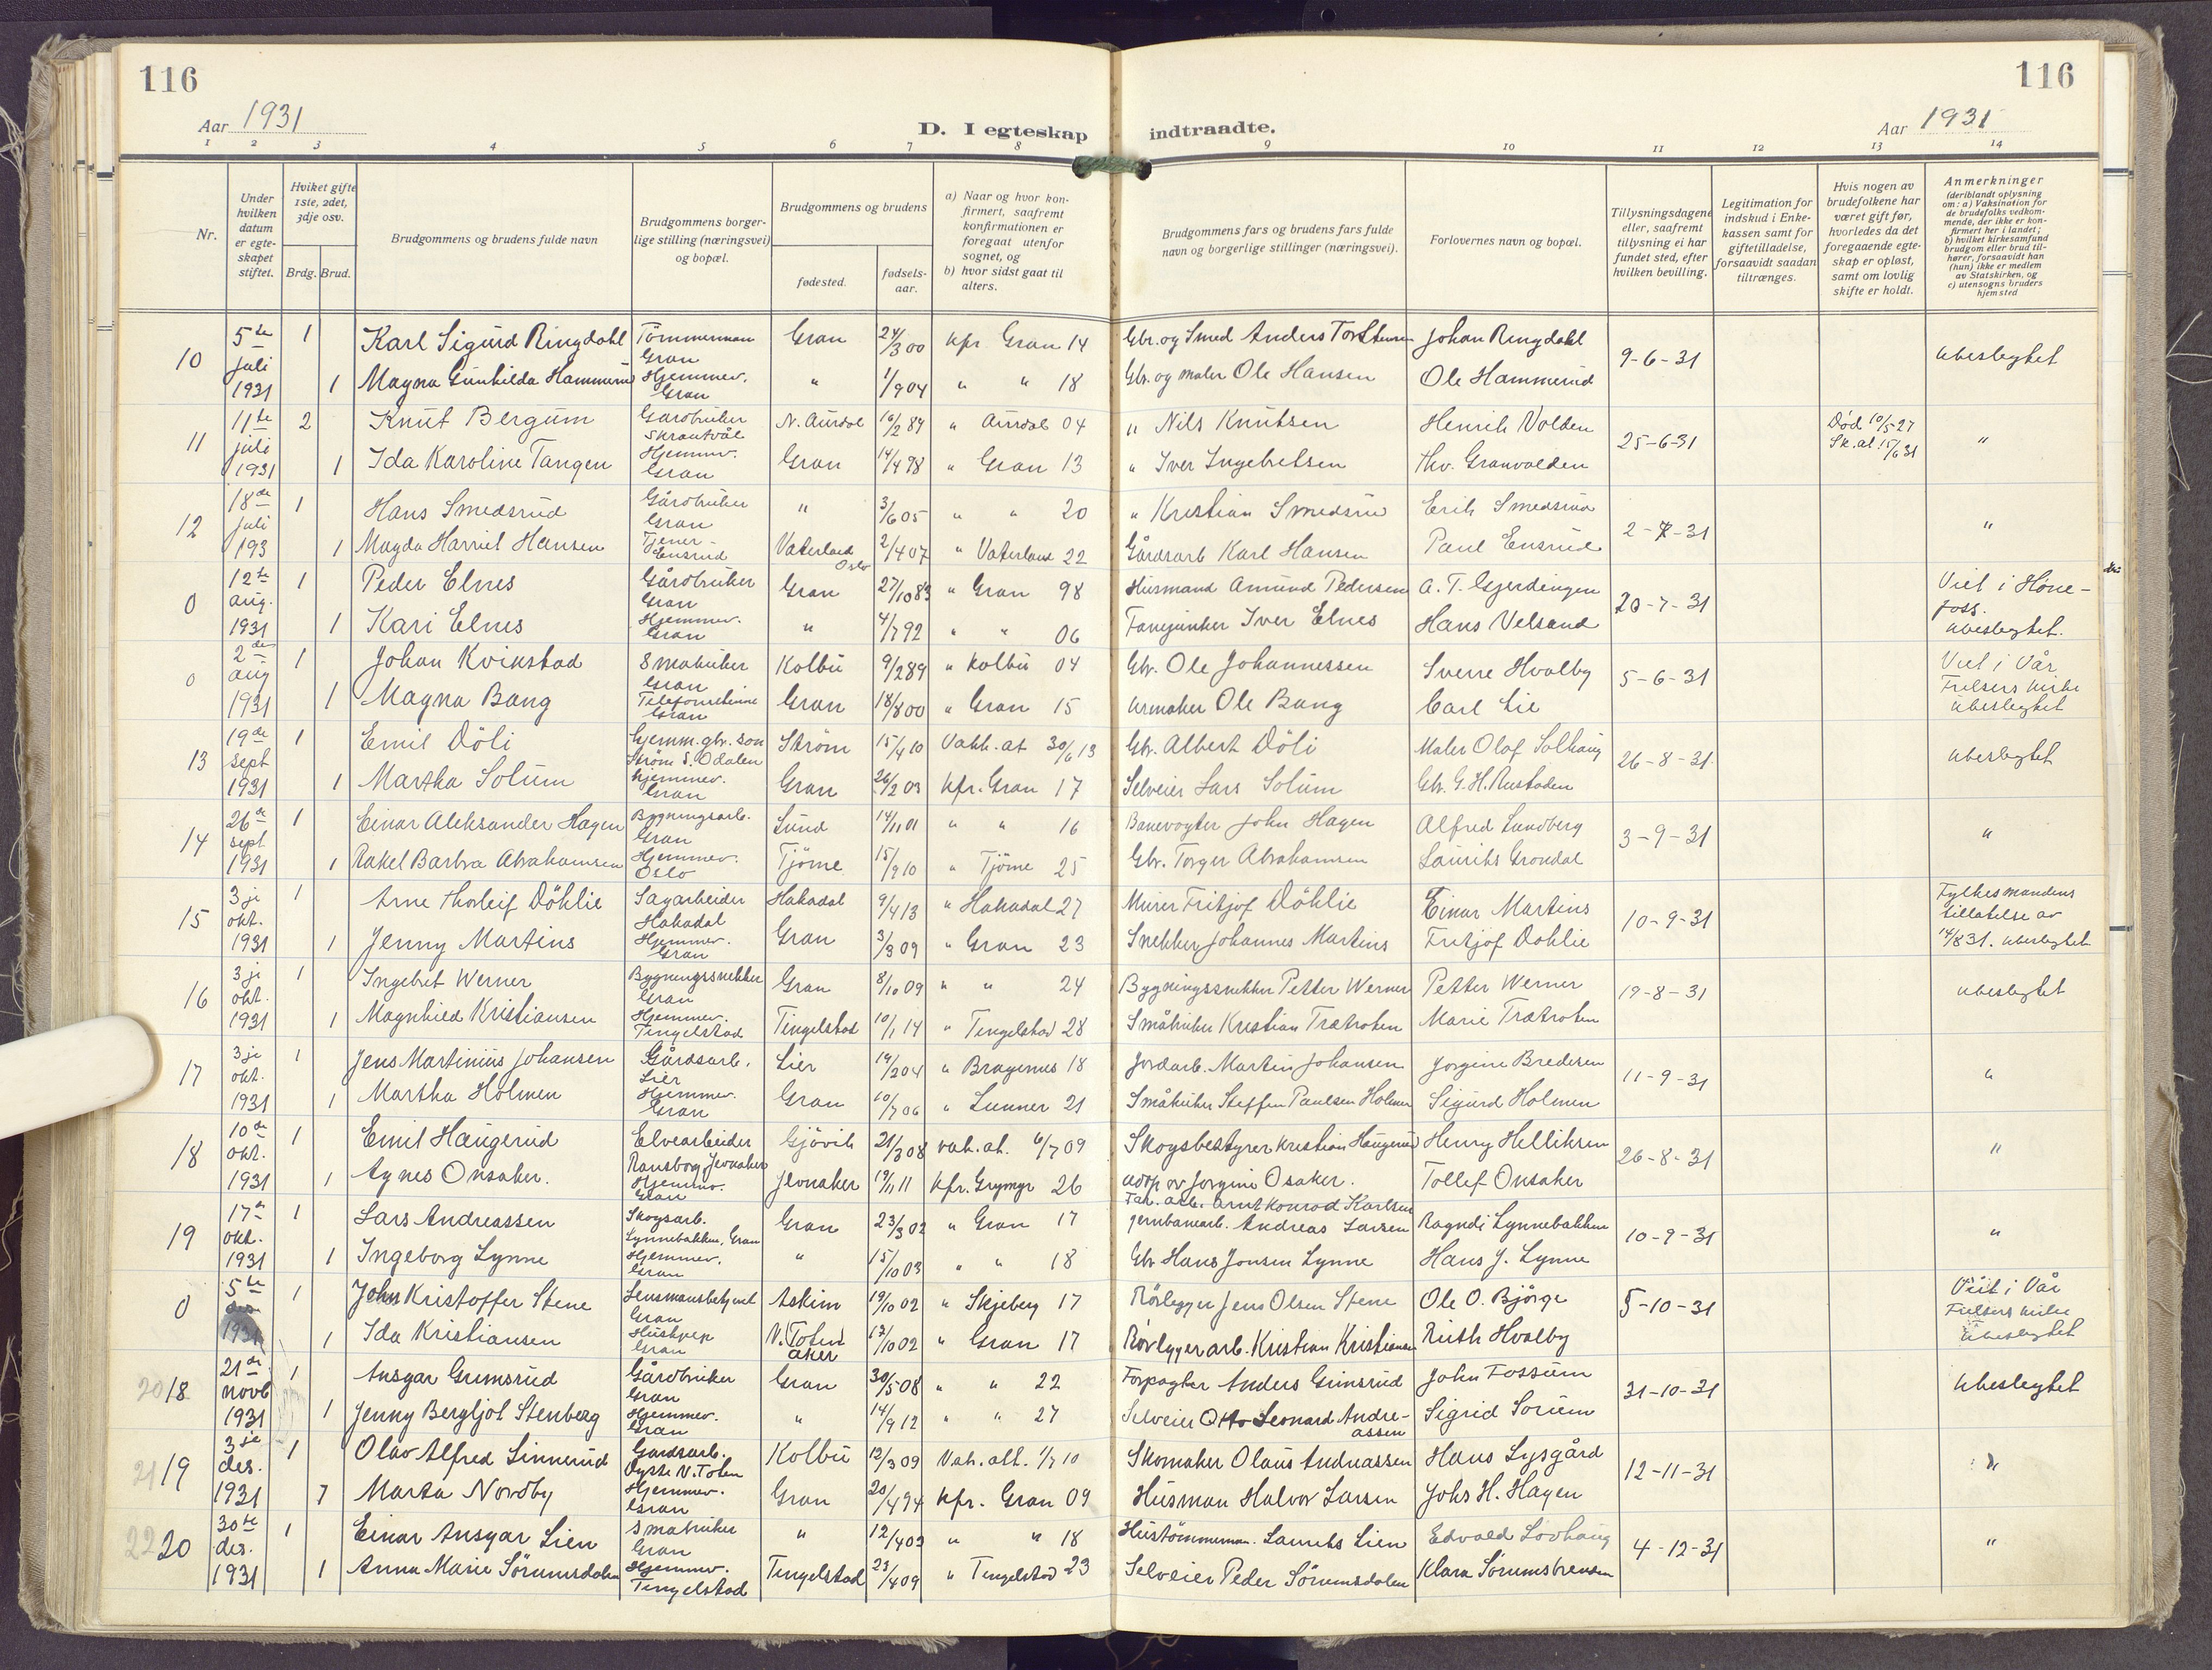 116
116
Aar 1931
D. I egteskap indtraadte.
Aar 1931
1 2 3 4 5 6 7 8 9 10 11 12 13 14
Nr.
Under hvilken datum er egteskapet stiftet.
Hviket gifte 1ste, 2det, 3dje osv.
Brdg. Brud.
Brudgommens og brudens fulde navn
Brudgommens borgerlige stilling (næringsvei) og bopæl.
Brudgommens og brudens
fødested.
fødselsaar.
a) Naar og hvor konfirmert, saafremt konfirmationen er foregaat utenfor sognet, og
b) hvor sidst gaat til alters.
Brudgommens fars og brudens fars fulde navn og borgerlige stillinger (næringsvei).
Forlovernes navn og bopæl.
Tillysningsdagene eller, saafremt tillysning ei har fundet sted, efter hvilken bevilling.
Legitimation for indskud i Enkekassen samt for giftetilladelse, forsaavidt saadan tiltrænges.
Hvis nogen av brudefolkene har været gift før, hvorledes da det foregaaende egteskap er opløst, samt om lovlig skifte er holdt.
Anmerkninger
(deriblandt oplysning om: a) Vaksination for de brudefolks vedkommende, der ikke er konfirmert her i landet;
b) hvilket kirkesamfund brudgom eller brud tilhører, forsaavidt han (hun) ikke er medlem av Statskirken, og
c) utensogns bruders hjemsted
10 5te juli 1931 1 Karl Sigurd Ringdahl Tømmerman Gran Gran 24/3 00 kfr Gran 14 Gbr. og Smed Anders Torstensen Johan Ringdahl 9-6-31 ubeslegtet
1 Magna Gunhilda Hammerud Hjemmev. Gran " 1/9 04 " " 18 Gbr. og maler Ole Hansen Ole Hammerud
11 11te juli 1931 2 Knut Bergum Gardbruker Skrautvål N. Aurdal 16/2 89 " Aurdal 04 " Nils Knutsen Henrik Volden 25-6-31 Død 10/5 27 Sk.at. 15/6 31 "
1 Ida Karoline Tangen Hjemmv. Gran Gran 14/4 98 " Gran 13 " Iver Ingebretsen Thv. Granvolden
12 18de juli 193 1 Hans Smedsrud Gårdbruker Gran " 3/6 05 " " 20 " Kristian Smedsrud Erik Smedsrud 2-7-31 "
1 Magda Harriet Hansen Tjener - Ensrud Vaterland Oslo 2/4 07 " Vaterland 22 Gårdsarb Karl Hansen Paul Ensrud
0 12te aug. 1931 1 Peder Elnes Gårdbruker Gran Gran 27/10 83 " Gran 98 Husmand Amund Pedersen A. T. Gjerdingen 20-7-31 Viet i Hønefoss. ubeslegtet.
1 Kari Elnes Hjemmev. Gran " 4/7 92 " " 06 Fanejunker Iver Elnes Hans Velsand
0 2den aug 1931 1 Johan Kvikstad Småbruker Gran Kolbu 9/2 89 " Kolbu 04 Gbr. Ole Johannessen Sverre Hvalby 5-6-31 Viet i Vår Frelsers kirke ubeslegtet
1 Magna Bang Gran Gran 18/8 00 " Gran 15 Urmaker Ole Bang Carl Lie
13 19de sept 1931 1 Emil Döli hjemm. gbr. søn Strøm S. Odalen Strøm 15/4 10 Vakk. at 30/6 13 Gbr. Albert Döli Maler Olof Solhaug 26-8-31 ubeslegtet
1 Martha Solum hjemmev. Gran Gran 26/2 03 kfr. Gran 17 Selveier Lars Solum Gbr. G. H. Rustaden
14 26de sept 1931 1 Einar Aleksander Hagen Bygningsarb. Gran Lund 14/11 01 " " 16 Banevogter John Hagen Alfred Lundberg 3-9-31 "
1 Rakel Barbra Abrahamsen Hjemmev. Oslo Tjöme 15/9 10 " Tjöme 25 Gbr. Torger Abrahamsen Laurits Grøndal
15 3je okt. 1931 1 Arne Thorleif Döhlie Sagarbeider Hakadal Hakadal 9/4 13 " Hakadal 27 Murer Fritjof Döhlie Einar Martins 10-9-31 Fylkesmandens tillatelse av 14/8 31. ubeslegtet
1 Jenny Martins Hjemmev. Gran Gran 3/3 09 " Gran 23 Snekker Johannes Martins Fritjof Dohlie
16 3je okt. 1931 1 Ingebret Werner Bygningssnekker Gran Gran 8/10 09 " " 24 Bygningssnekker Petter Werner Petter Werner 19-8-31 ubeslegtet
1 Magnhild Kristiansen Hjemmev. Tingelstad Tingelstad 10/1 14 " Tingelstad 28 Småbruker Kristian Trætroten Marie Trætroten
17 3je okt. 1931 1 Jens Martinius Johansen Gårdsarb. Lier Lier 19/2 04 " Bragernes 18 Jordarb. Martin Johansen Jorgine Bredesen 11-9-31 "
1 Martha Holmen Hjemmev. Gran Gran 10/7 06 " Lunner 21 Småbruker Steffen Paulsen Holmen Sigurd Holmen
18 10de okt. 1931 1 Emil Haugerud Elvearbeider Ransborg Jevnaker Gjövik 21/3 08 vak. at. 6/7 09 Skogsbestyrer Kristian Haugerud Henry Helliksen 26-8-31 "
1 Agnes Onsaker. Hjemmv. Gran Jevnaker 19/11 11 kfr. Grymyr 26 adop av Jorgine Osaker. Fab. arb. Arnt Konrad Karlsen Tollef Onsaker
19 17de okt. 1931 1 Lars Andreassen Skogsarb. Lynnebakken, Gran Gran 23/3 02 " Gran 17 jernbanearb. Andreas Larsen Ragndi Lynnebakken 10-9-31 "
1 Ingeborg Lynne Hjemmev. Gran " 15/10 03 " " 18 Gbr Hans Jonsen Lynne Hans J. Lynne
0 5te 1931 1 John Kristoffer Stene Lensmansbetjent Gran Askim 19/10 02 " Skjeberg 17 Rörlegger Jens Olsen Stene Ole O. Björge 5-10-31 Viet i Vår Frelsers kirke ubeslegtet
1 Ida Kristiansen Gran N. (Toten) aker 17/10 02 " Gran 17 Rörleggerarb. Kristian Kristiansen Ruth Hvalby
20 18 21de novb 1931 1 Ansgar Grimsrud Gårdbruker Gran Gran 30/5 08 " " 22 Forpagter Anders Grimsrud John Fossum 31-10-31 ubeslegtet
1 Jenny Bergljot Stenberg Hjemmev. Gran " 14/9 12 " " 27 Selveier Otto Leonard Andreassen Sigrid Sorum
21 19 3je des. 1931 1 Olav Alfred Linnerud Gardsarb. V. Toten Kolbu 12/3 09 Vak. att. 1/7 10 Skomaker Olaus Andreassen Hans Lysgård 12-11-31 "
1 Marta Nordby Hjemmev. Gran Gran 20/4 94 kfr. Gran 09 Husman Halvor Larsen Johs H. Hagen
22 20 30te des. 1931 1 Einar Ansgar Lien Småbruker Gran " 12/4 03 " " 18 Hustömmerman. Laurits Lien Edvald Lovhaug 4-12-31 "
1 Anna Marie Sörumsdalen Hjemmev. Tingelstad Tingelstad 23/4 09 " Tingelstad 23 Selveier Peder Sörumsdalen Klara Sörumsbrenden